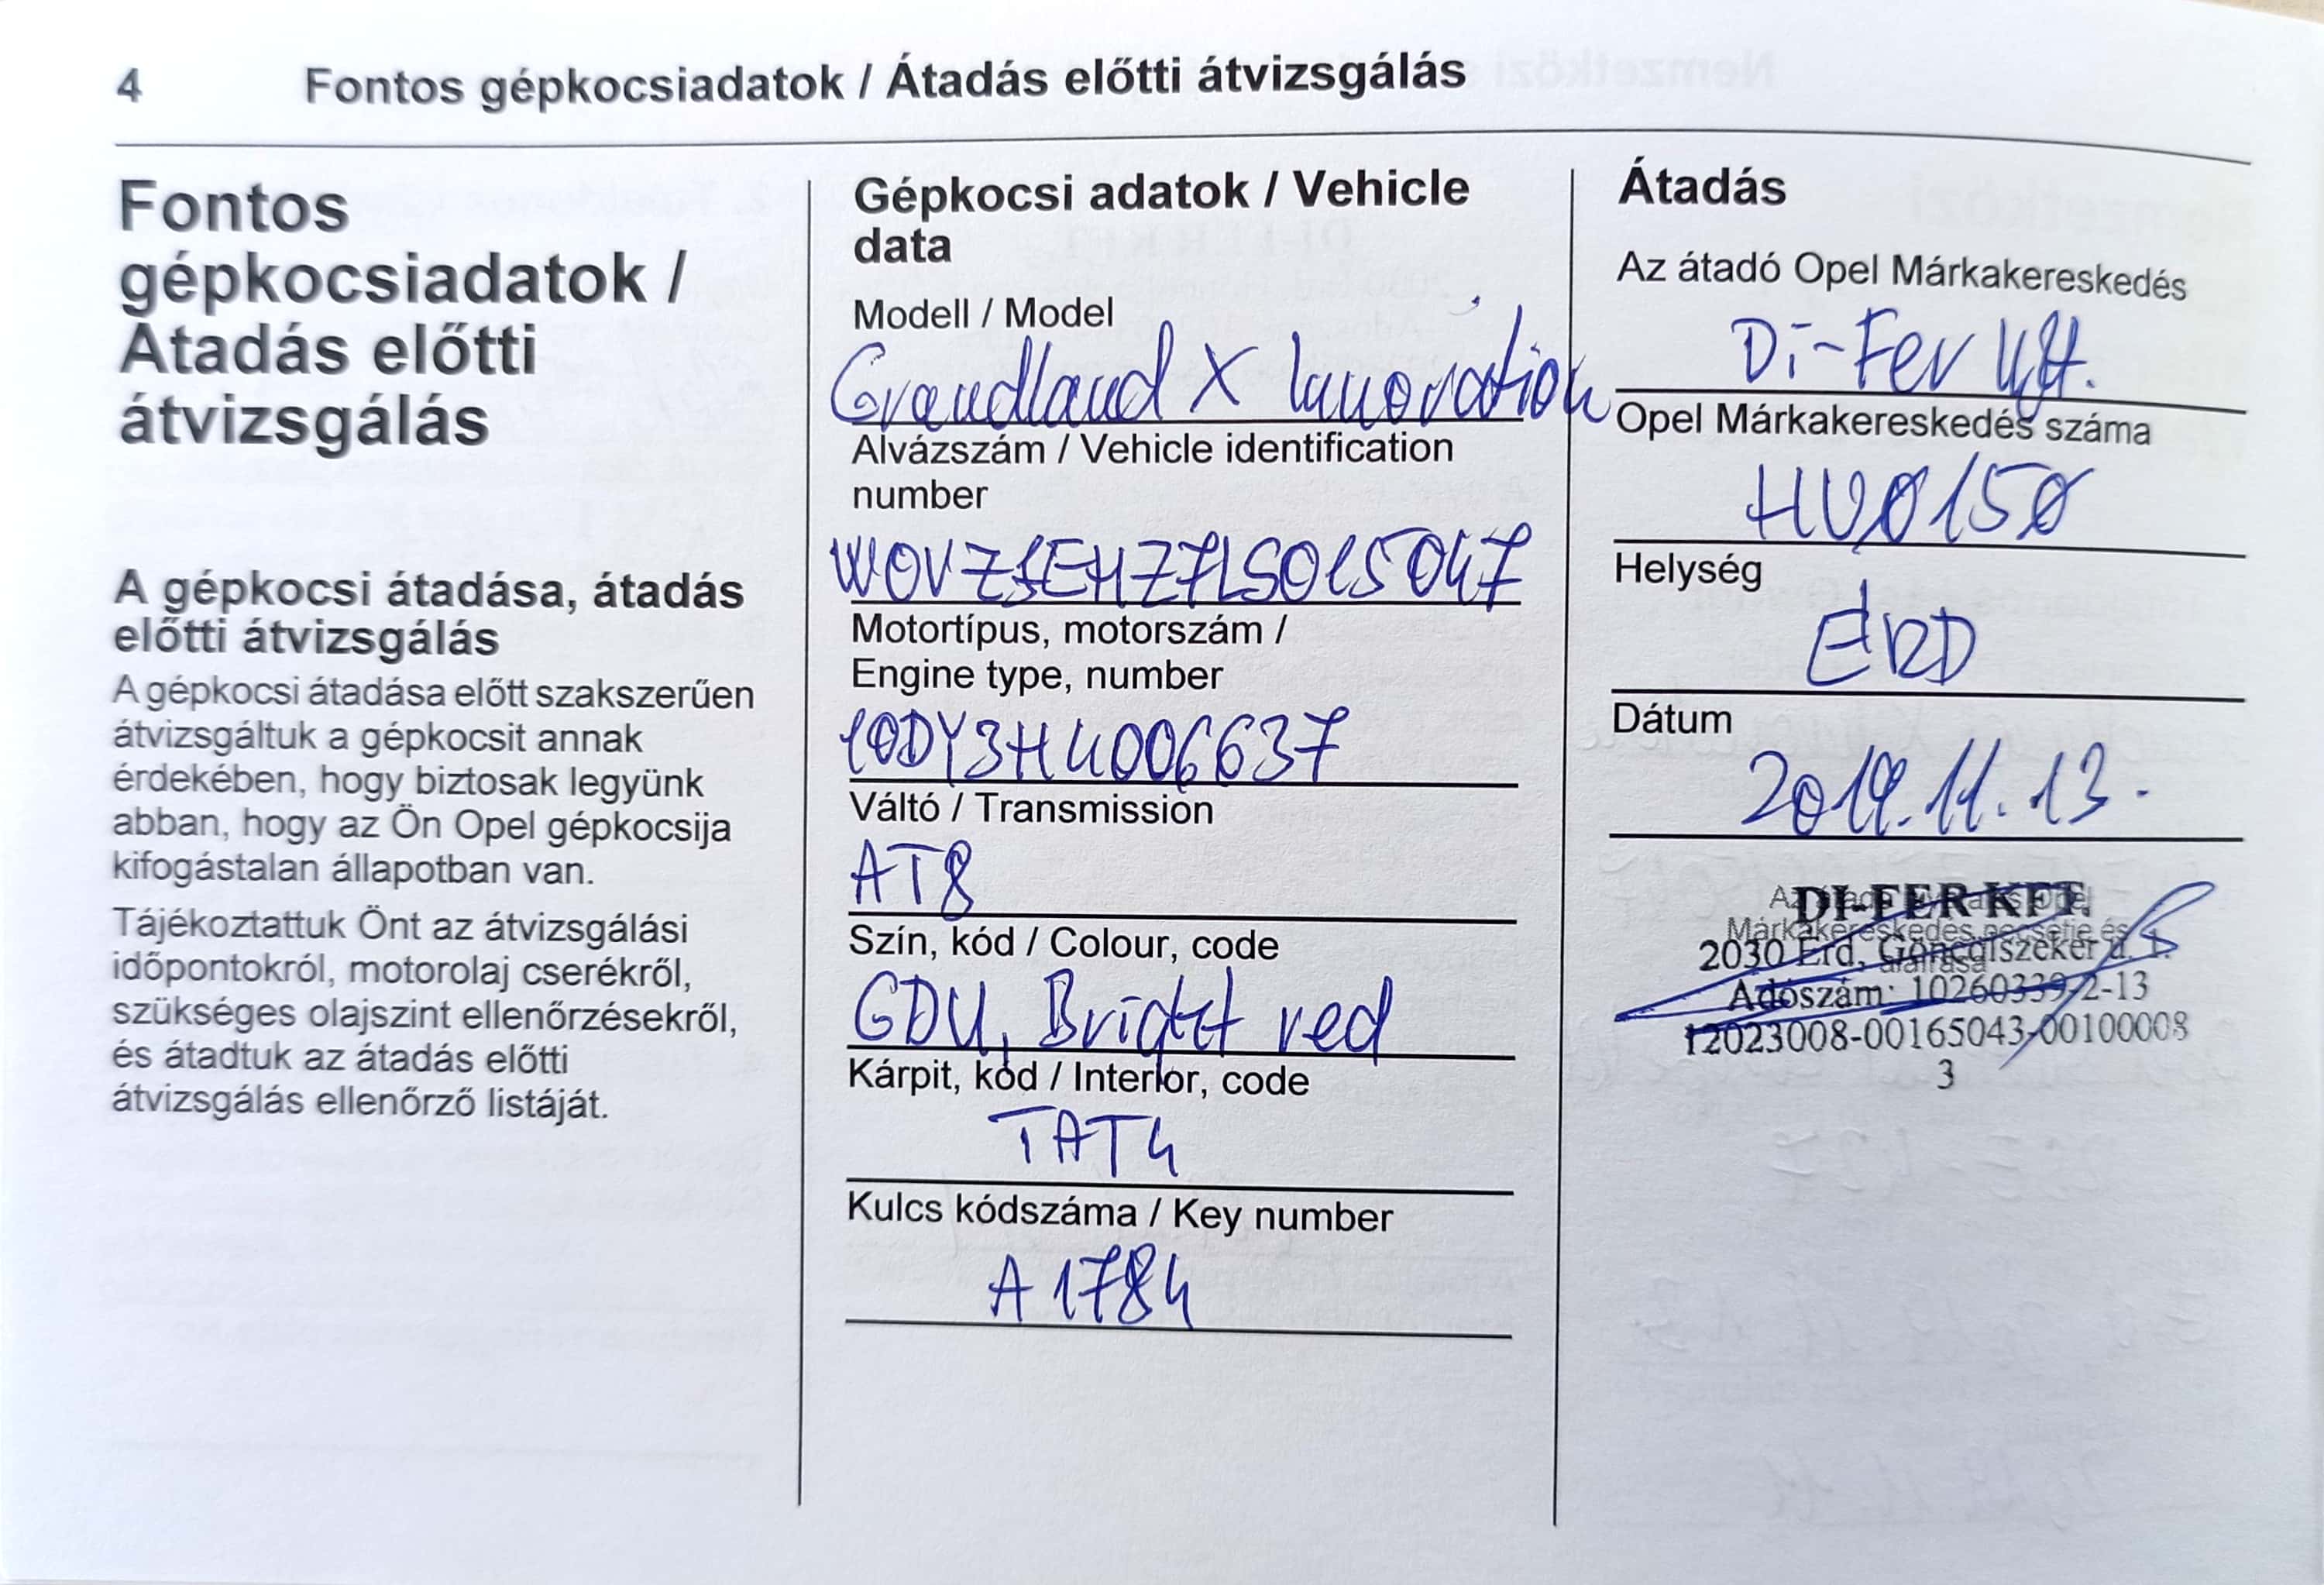 4 Fontos gépkocsiadatok / Átadás előtti átvizsgálás
Fontos
gépkocsiadatok /
Átadás előtti
átvizsgálás
A gépkocsi átadása, átadás
előtti átvizsgálás
A gépkocsi átadása előtt szakszerűen
átvizsgáltuk a gépkocsit annak
érdekében, hogy biztosak legyünk
abban, hogy az Ön Opel gépkocsija
kifogástalan állapotban van.
Tájékoztattuk Önt az átvizsgálási
időpontokról, motorolaj cserékről,
szükséges olajszint ellenőrzésekről,
és átadtuk az átadás előtti
átvizsgálás ellenőrző listáját.
Gépkocsi adatok / Vehicle
data
Modell / Model
Grandland X Innovation
Alvázszám / Vehicle identification
number
W0VZ1EHZ7LS015047
Motortípus, motorszám /
Engine type, number
10DY3H4006637
Váltó / Transmission
AT8
Szín, kód / Colour, code
GDU, Bright red
Kárpit, kód / Interior, code
TAT4
Kulcs kódszáma / Key number
A1784
Átadás
Az átadó Opel Márkakereskedés
Di-Fer Kft.
Opel Márkakereskedés száma
HU0150
Helység
ÉRD
Dátum
2019.11.13.
DI-FER KFT.
2030 Érd, Göncölszekér u. 1.
Adószám: 10260339-2-13
12023008-00165043-00100008
3